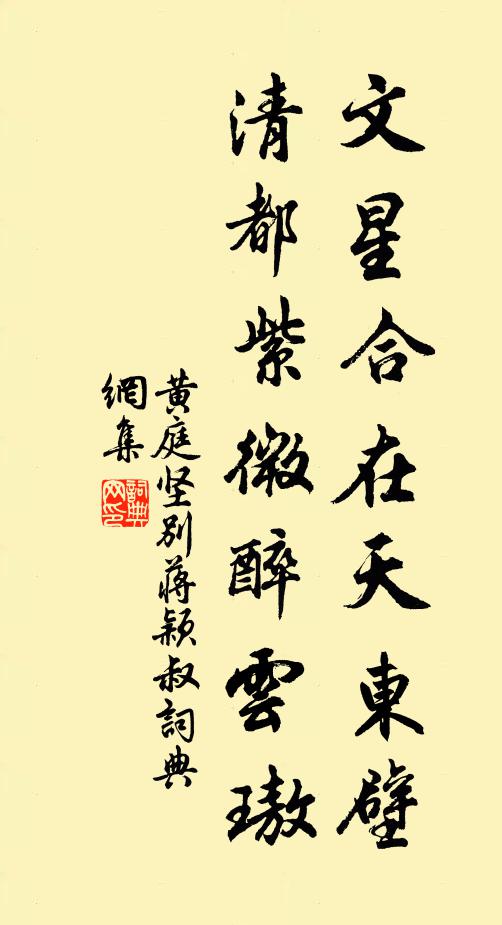 文星合在天東壁
清都紫微醉雲璈
黄庭坚别蔣穎叔詞典
網集
詞典
网印